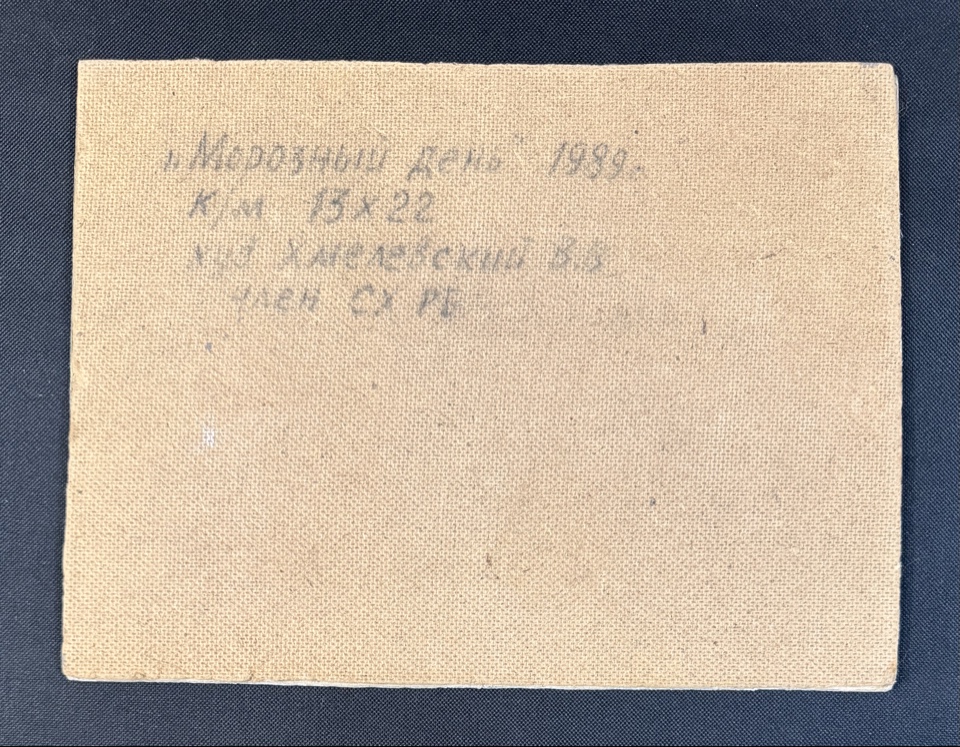 „Морозный день" 1989г.
к/м 13х22
худ Хмелевский В.В.
член СХ РБ